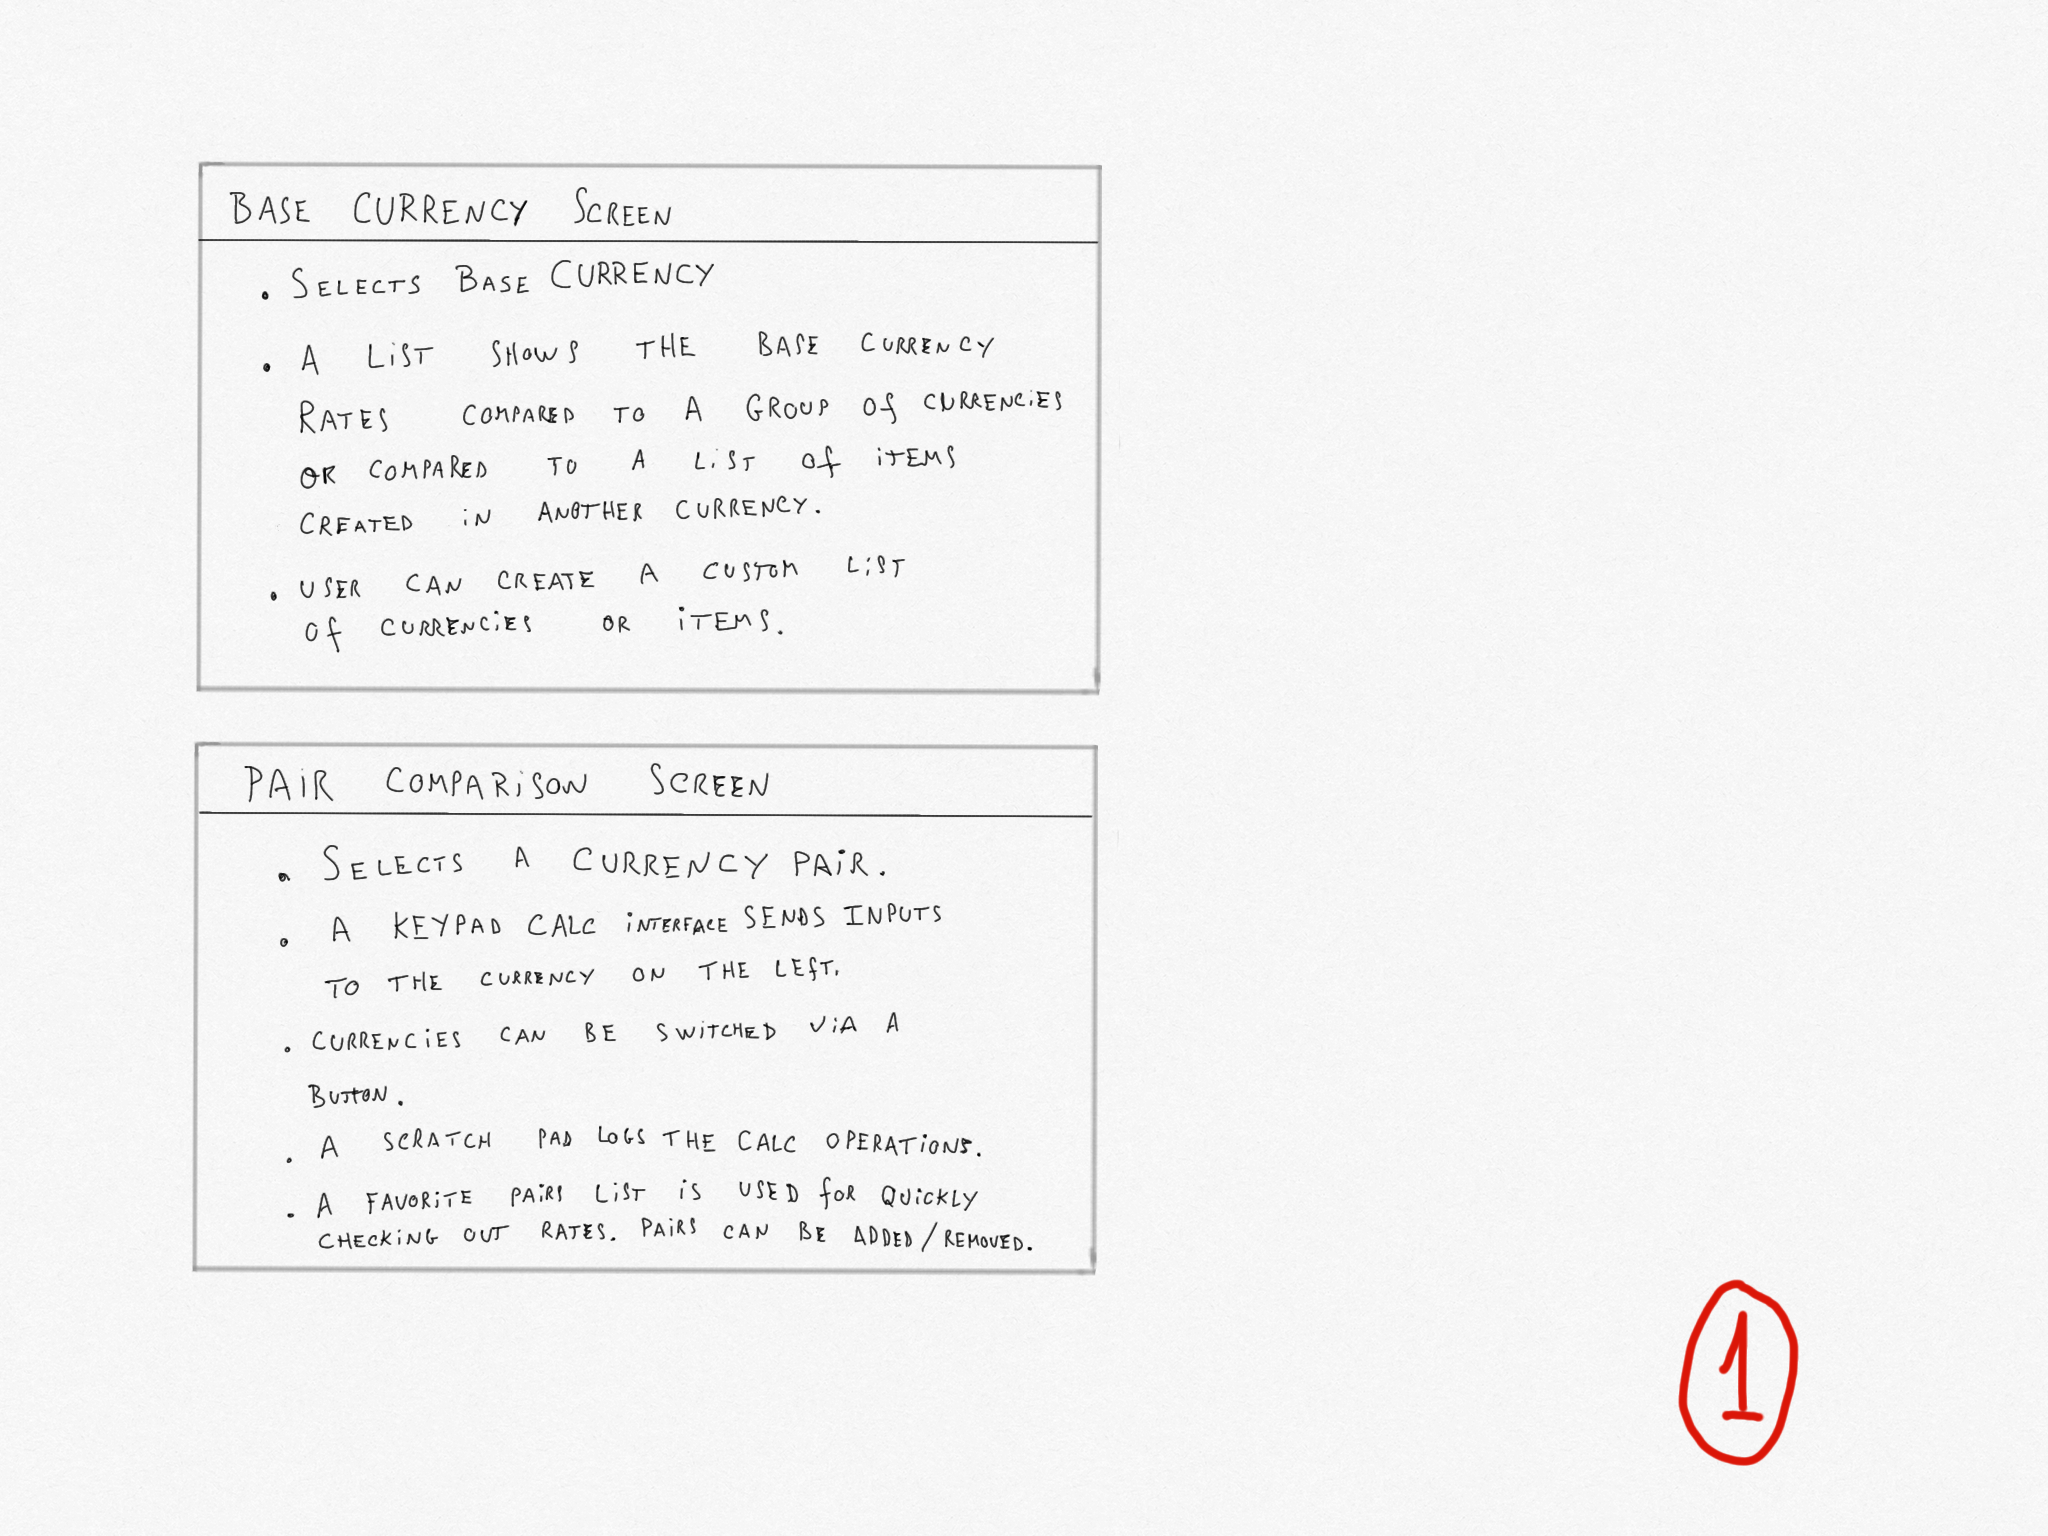 BASE CURRENCY SCREEN
• SELECTS BASE CURRENCY
• A LIST SHOWS THE BASE CURRENCY
RATES COMPARED TO A GROUP OF CURRENCIES
OR COMPARED TO A LIST OF ITEMS
CREATED IN ANOTHER CURRENCY.
• USER CAN CREATE A CUSTOM LIST
OF CURRENCIES OR ITEMS.
PAIR COMPARISON SCREEN
• SELECTS A CURRENCY PAIR.
• A KEYPAD CALC INTERFACE SENDS INPUTS
TO THE CURRENCY ON THE LEFT.
• CURRENCIES CAN BE SWITCHED VIA A
BUTTON.
• A SCRATCH PAD LOGS THE CALC OPERATIONS.
• A FAVORITE PAIRS LIST IS USED FOR QUICKLY
CHECKING OUT RATES. PAIRS CAN BE ADDED/REMOVED.
1